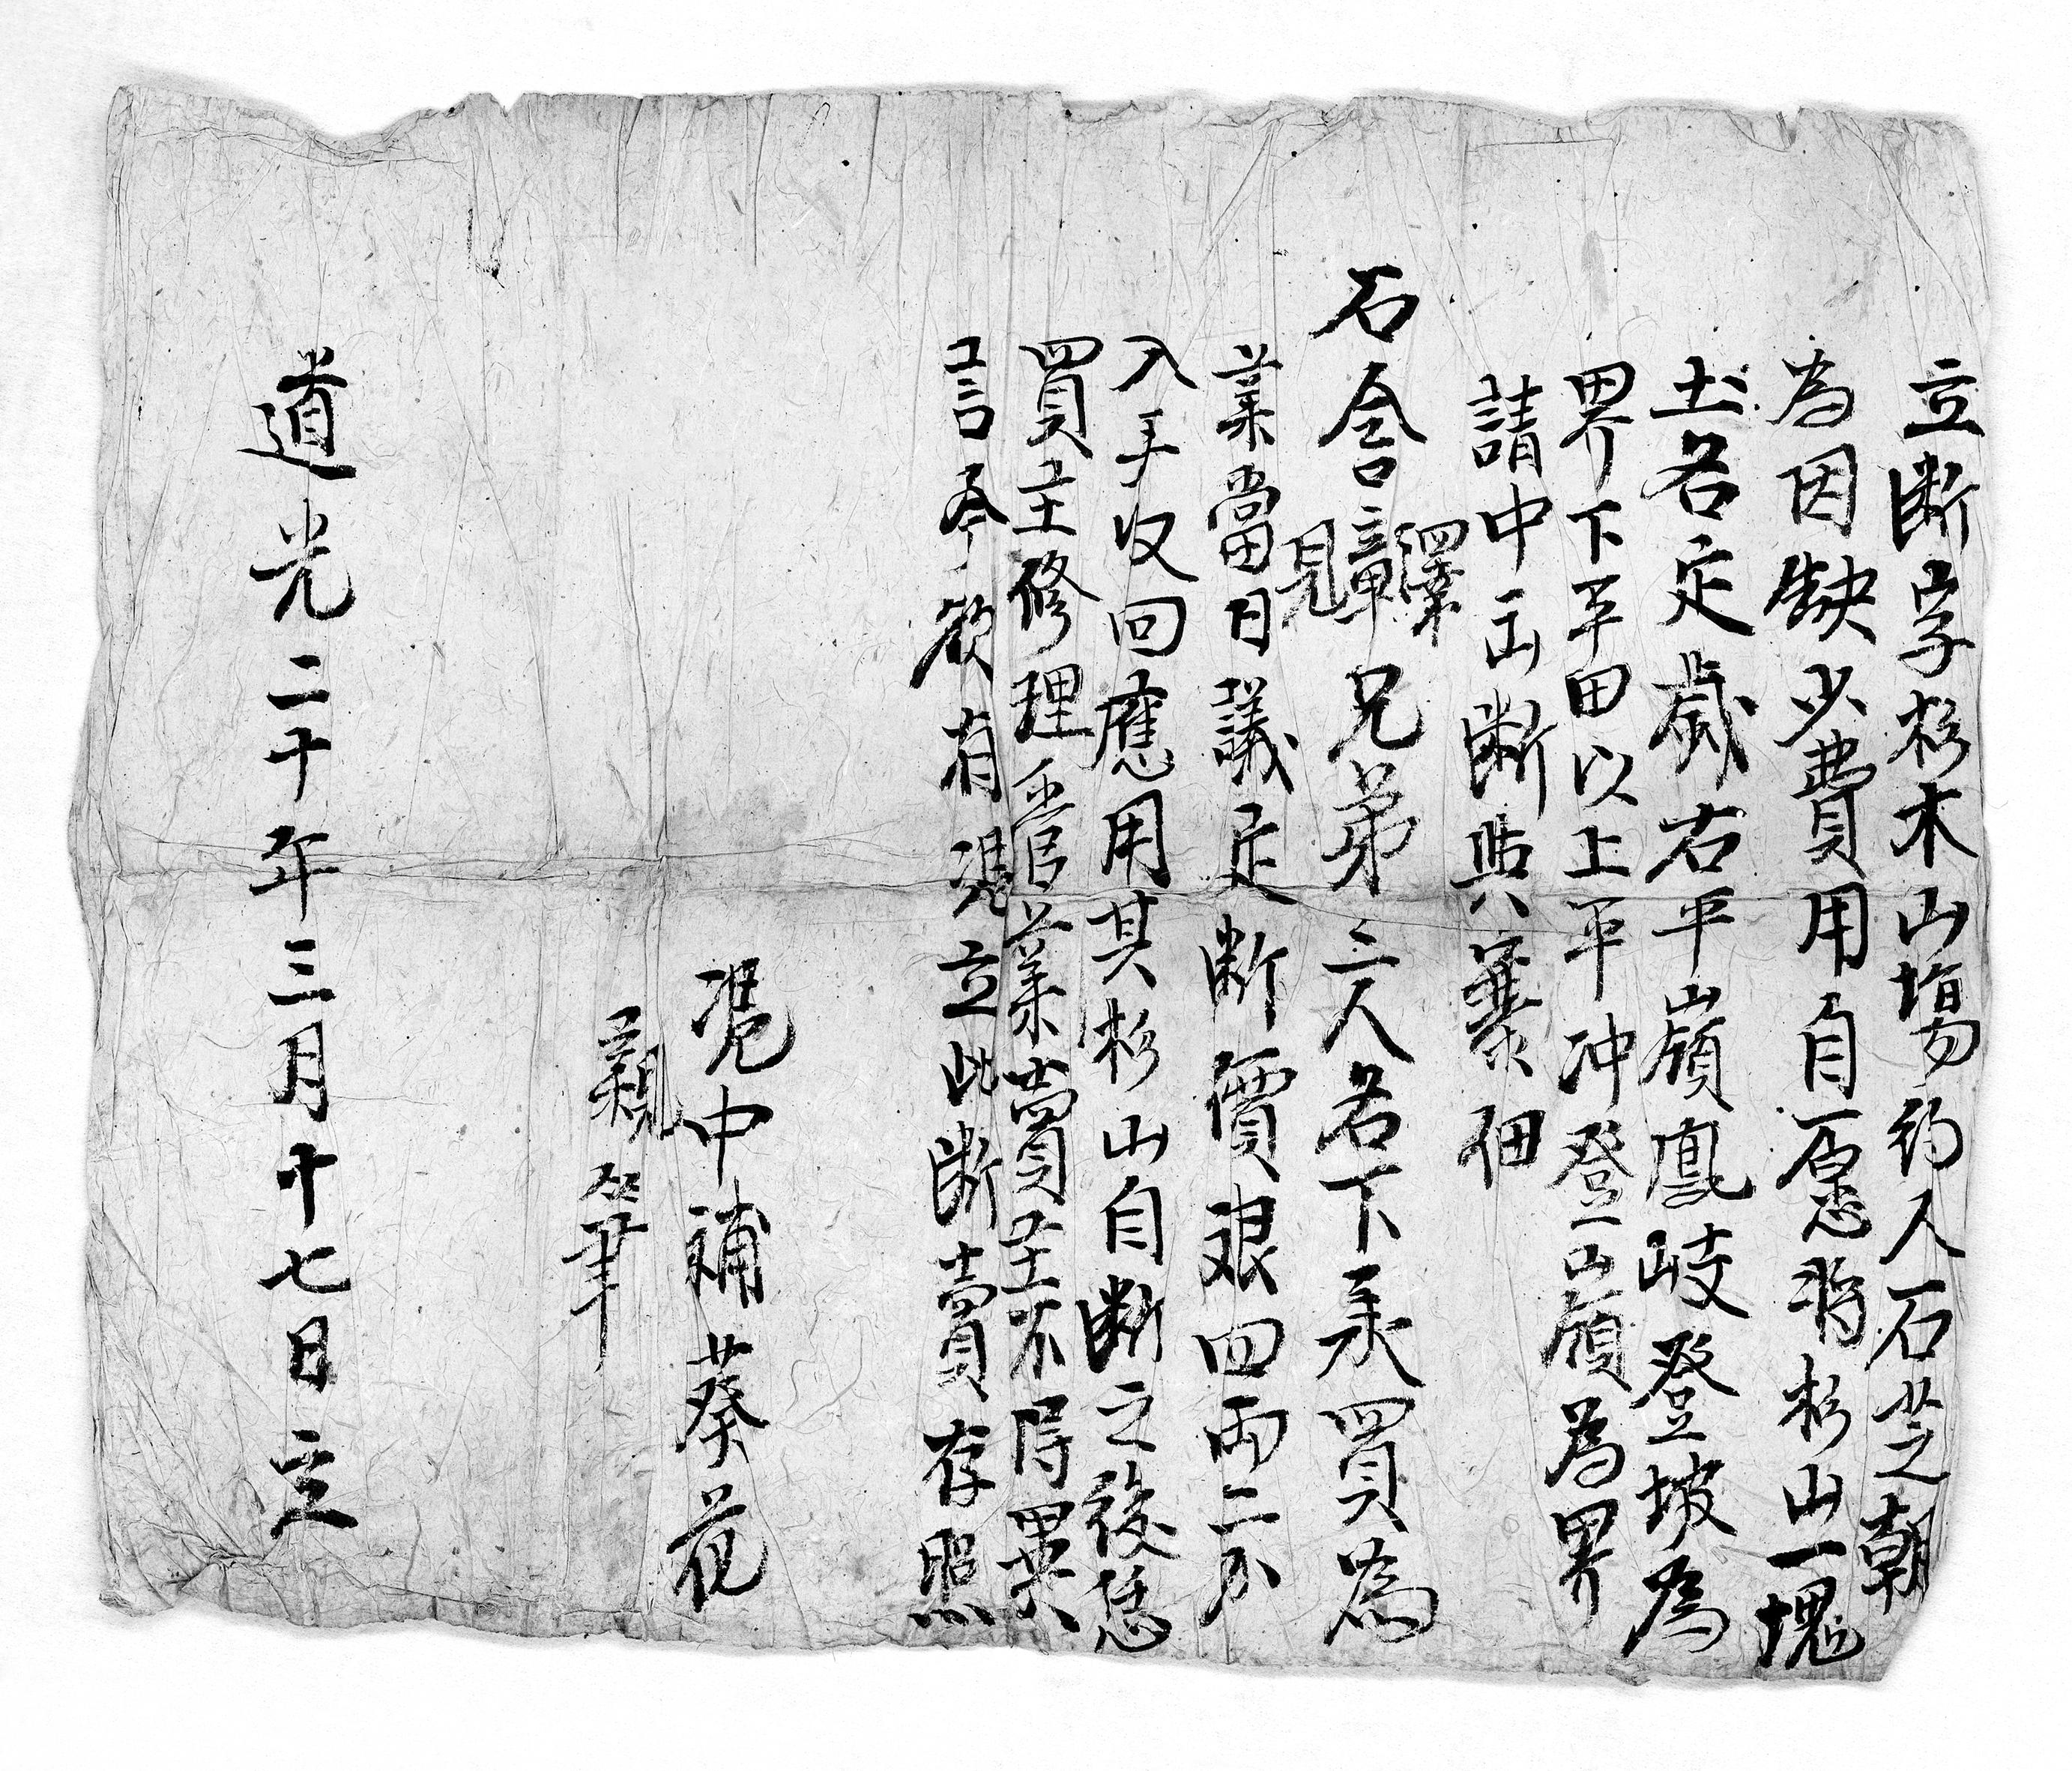 立断字杉木山塲約人石芝朝
為因缺少費用自愿將杉山一塊
土名定歲右平嶺鳳岐登坡為
界下平田以上平冲登山嶺為界
請中出断與寨佃
石含章澤見兄弟三人名下承買為
業當日議定断價艮四両二分
入手収回應用其杉山自断之後恁
買主修理管業賣主不得異
言今欲有凴立此断賣存照
凴中補葵花
親筆
道光二十年三月十七日立